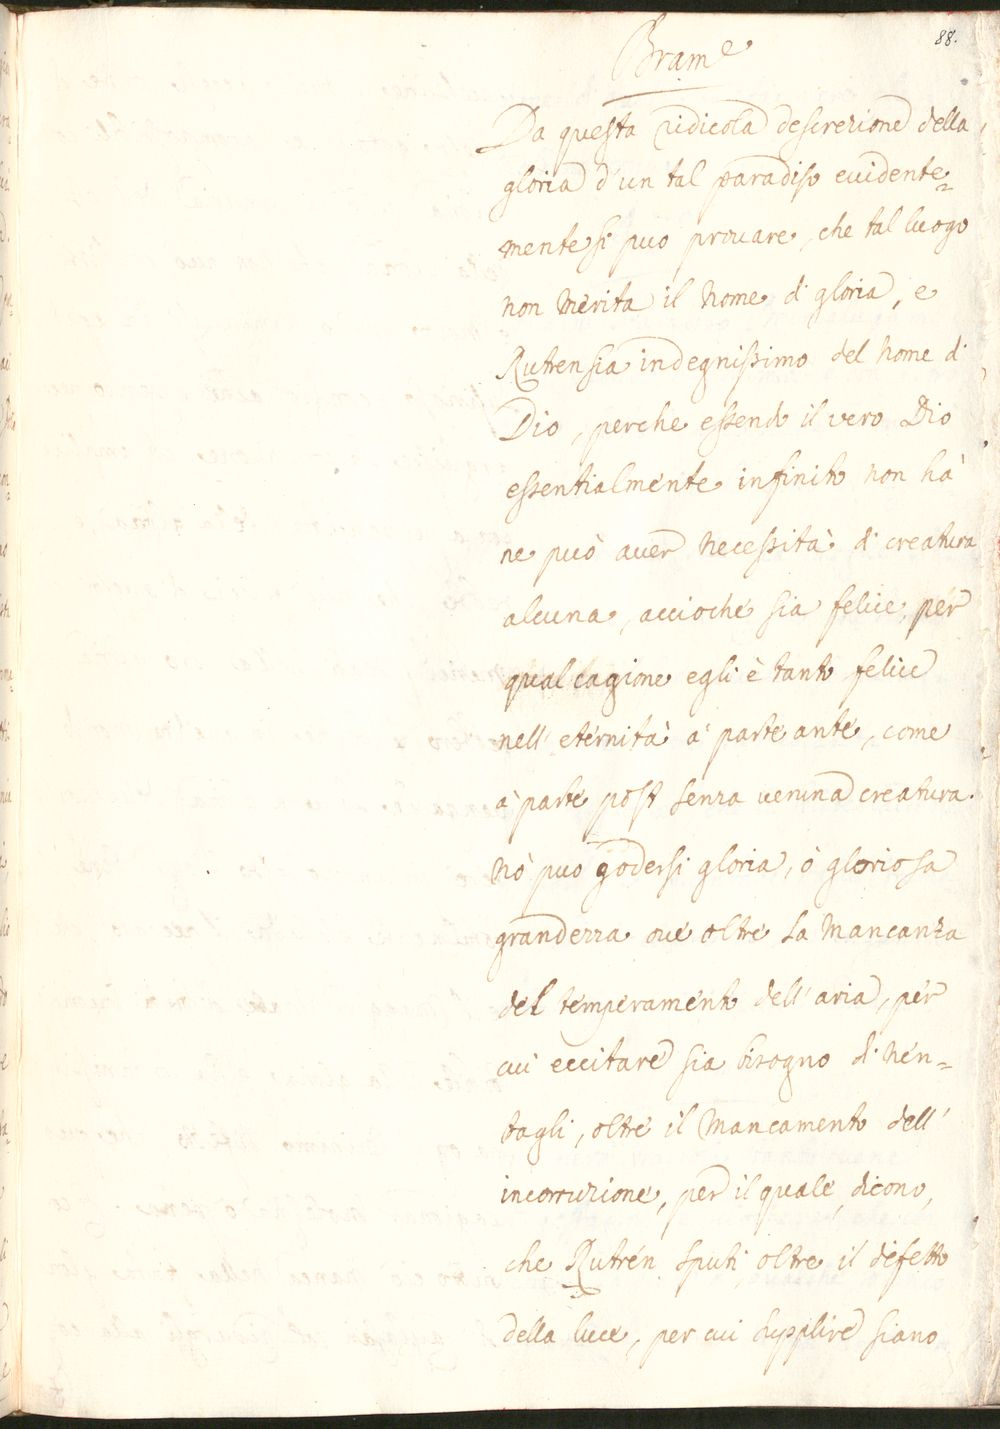 88.
Brame
Da questa ridicola descrezione della
gloria d'un tal paradiso euidente=
mente si puo prouare, che tal luogo
non merita il nome di gloria, e
Rutrensia indegnissimo del nome di
Dio, perche essendo il vero Dio
essentialmente infinito non hà
ne può auer necessità di creatura
alcuna, accioche sia felice, per
qual cagione egli è tanto felice
nell'eternità à parte ante, come
à parte post senza ueruna creatura.
Nò puo godersi gloria, ò gloriosa
grandezza oue oltre la mancanza
del temperamento dell'aria, per
cui eccitare sia bisogno di uen=
tagli, oltre il mancamento dell'
incorruzione, per il quale, dicono,
che Rutrén sputi oltre il defetto
della luce, per cui supplire siano